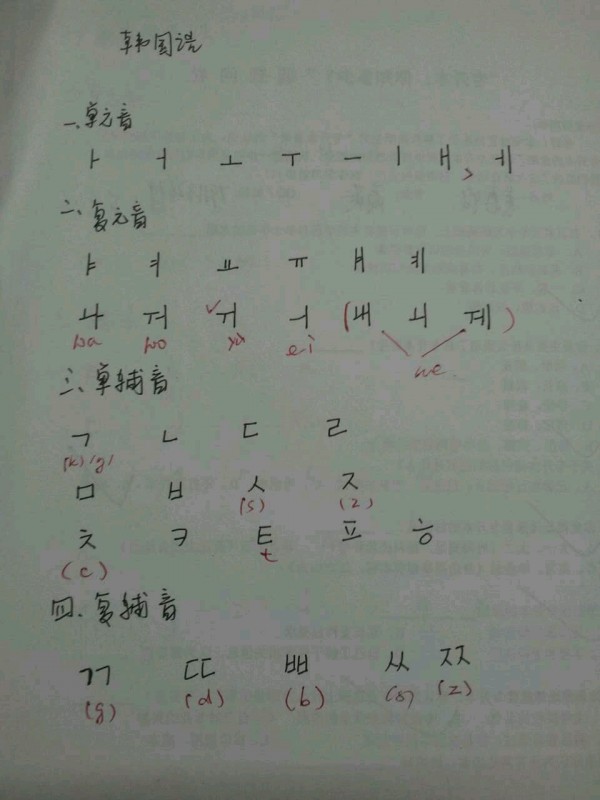 韩国语
一、单元音
ㅏ ㅓ ㅗ ㅜ ㅡ ㅣ ㅐ, ㅔ
二、复元音
ㅑ ㅕ ㅛ ㅠ ㅒ ㅖ
ㅘ ㅝ ✓ㅟ ㅢ (ㅙ ㅚ ㅞ)
wa wo yu ei we
三、单辅音
ㄱ ㄴ ㄷ ㄹ
(k)/g/
ㅁ ㅂ ㅅ ㅈ
(s) (z)
ㅊ ㅋ ㅌ ㅍ ㅎ
(c) t
四、复辅音
ㄲ ㄸ ㅃ ㅆ ㅉ
(g) (d) (b) (s) (z)